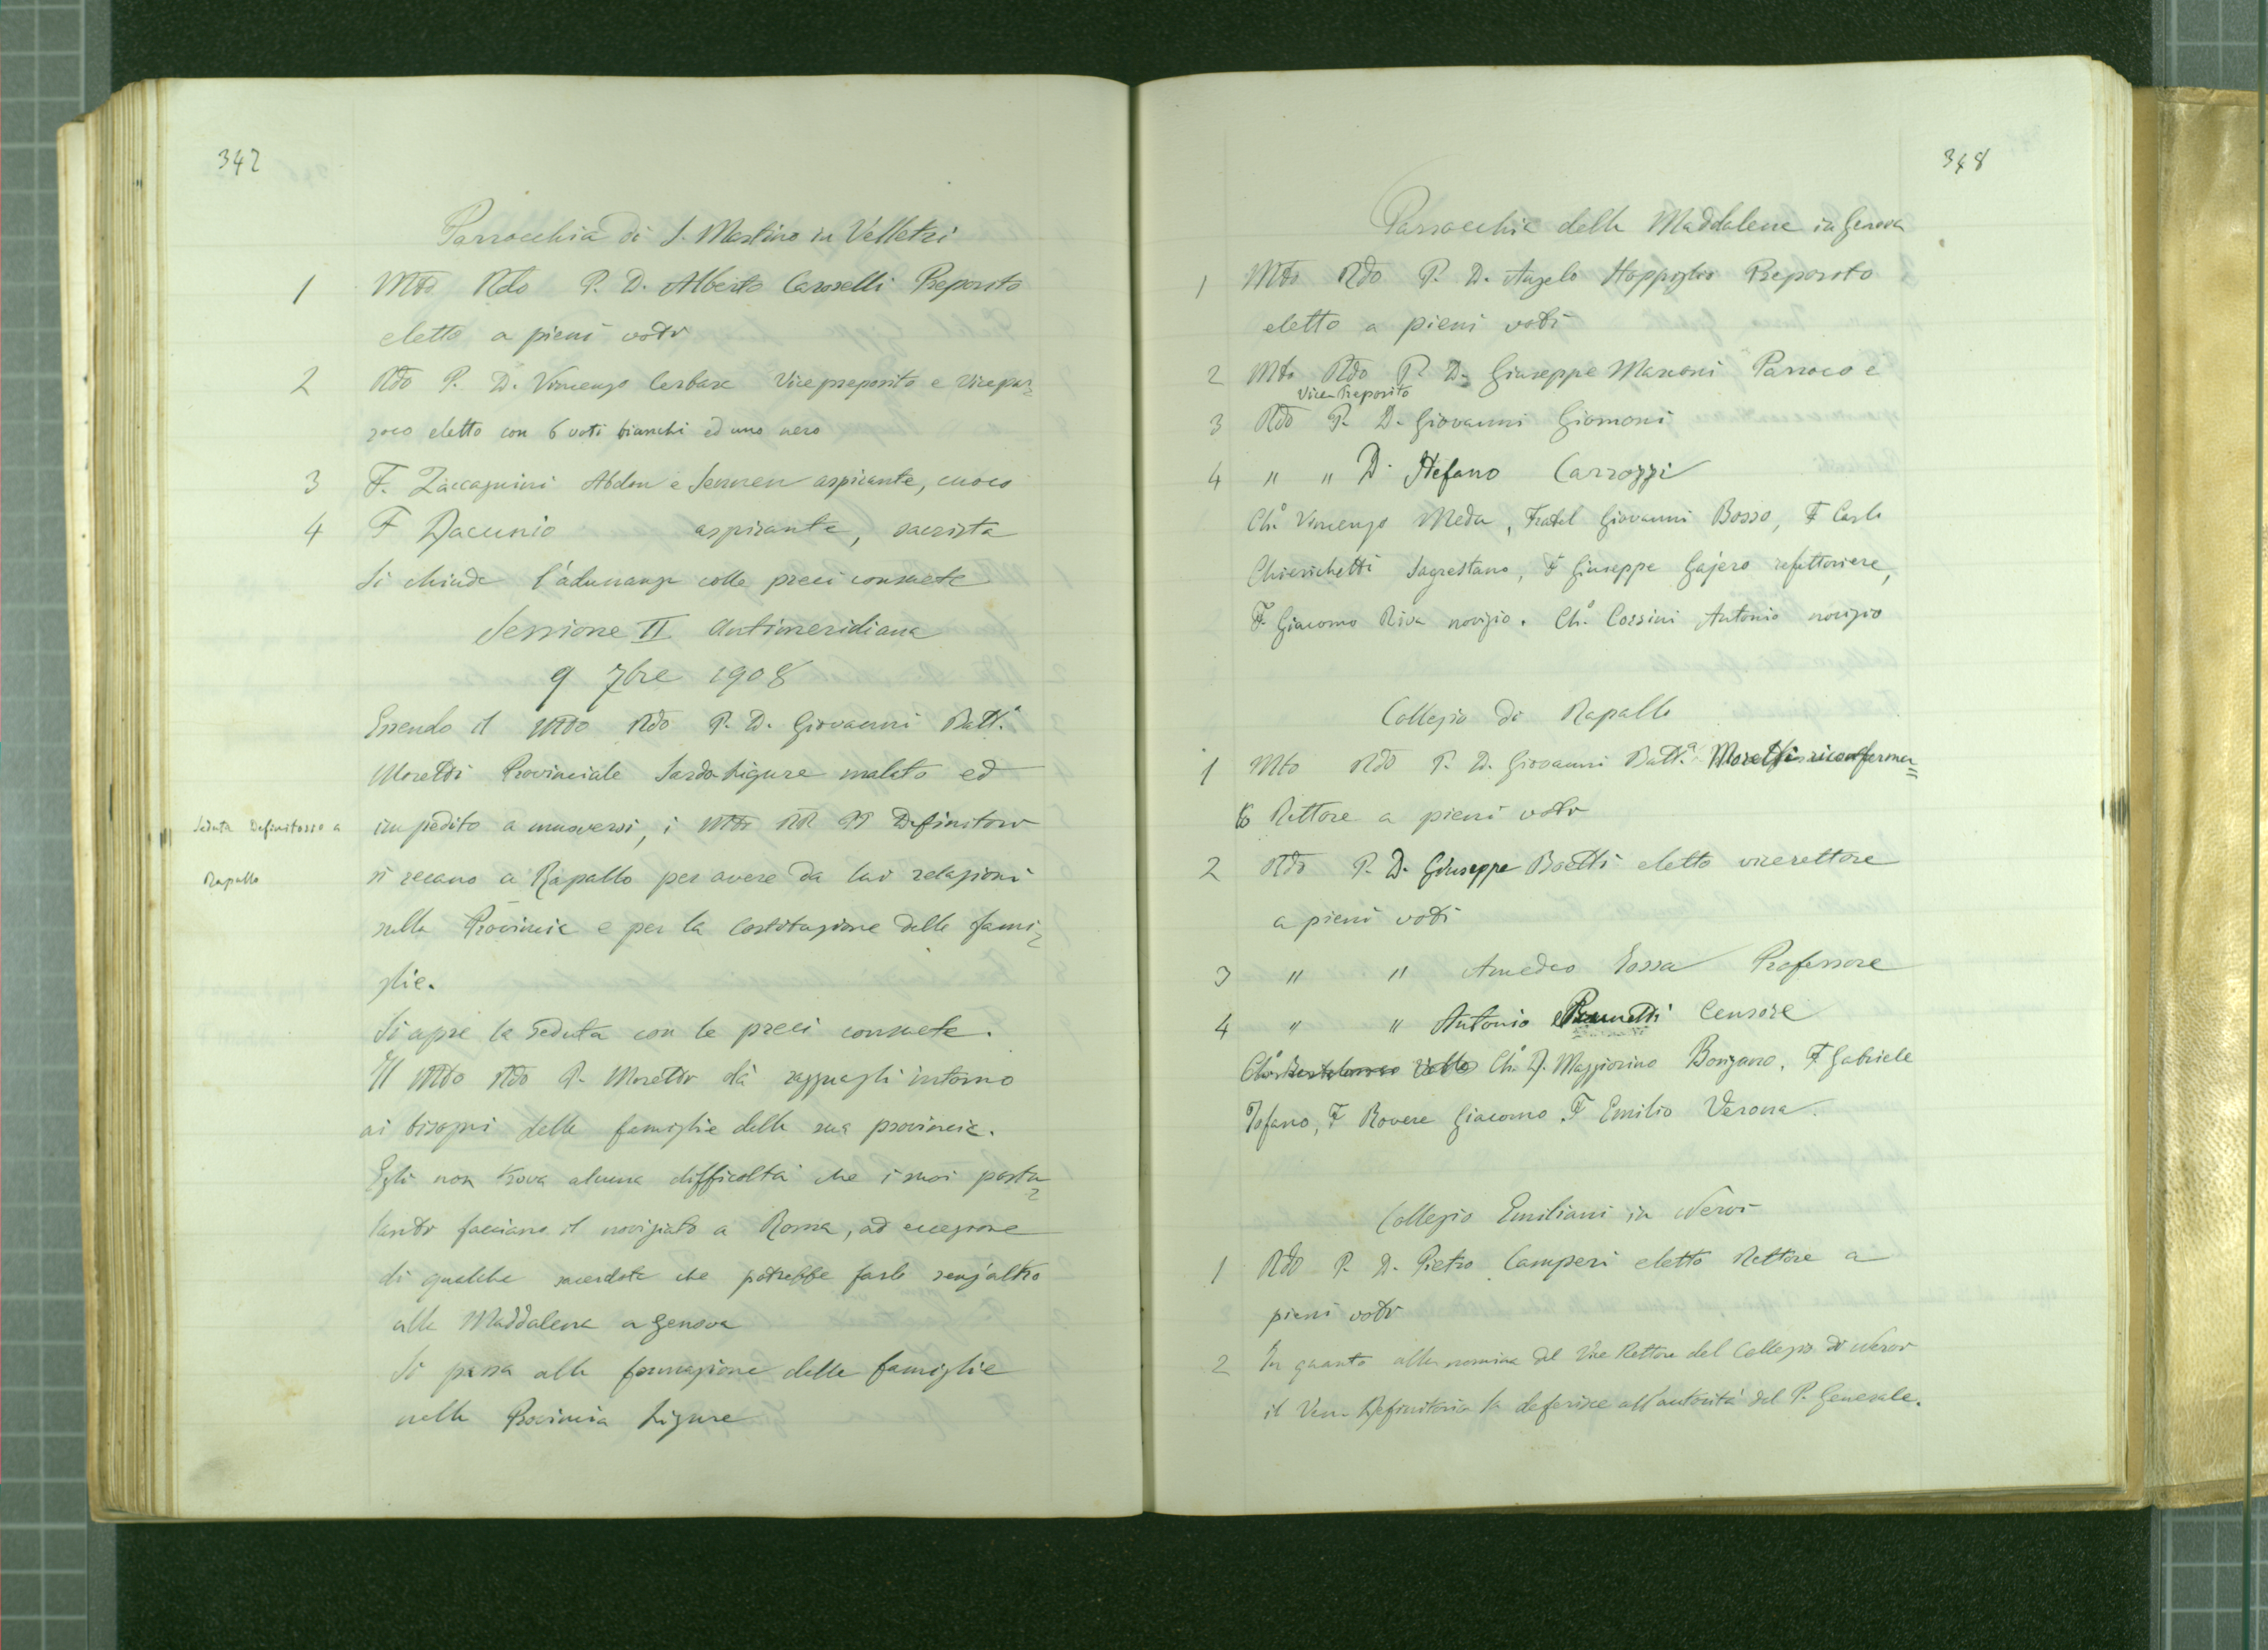 347
Parrocchia di S. Martino in Velletri
1 Mto Rdo P. D. Alberto Caroselli Preposito
eletto a pieni voti
2 Rdo P. D. Vincenzo Cerbara Vicepreposito e vicepar=
roco eletto con 6 voti bianchi ed uno nero
3 F. Zaccagnini Abdon e Sennen aspirante, cuoco
4 F Dacunio aspirante, sacrista
Si chiude l'adunanza colle preci consuete
Sessione II Antimeridiana
9 7bre 1908
Essendo il Mto Rdo P. D. Giovanni Batt.a
Moretti Provinciale Sardo Ligure malato ed
impedito a muoversi, i Mti RR PP Definitori
Seduta Definitoro a
Rapallo
si recano a Rapallo per avere da lui relazioni
sulla Provincia e per la costituzione delle fami=
glie.
Si apre la seduta con le preci consuete.
Il Mto Rdo P. Moretti dà ragguagli intorno
ai bisogni delle famiglie della sua provincia.
Egli non trova alcuna difficoltà che i suoi postu=
lanti facciano il noviziato a Roma, ad eccezione
di qualche sacerdote che potrebbe farlo senz'altro
alla Maddalena a Genova
Si passa alla formazione delle famiglie
nella Provincia Ligure
348
Parrocchia della Maddalena in Genova
1 Mto Rdo P. D. Angelo Stoppiglia Preposito
eletto a pieni voti
2 Mto Rdo P. D. Giuseppe Marconi Parroco e
Vice-Preposito
3 Rdo P. D. Giovanni Giomoni
4 " " D. Stefano Carrozzi
Ch.o Vincenzo Meda, Fratel Giovanni Bosso, F Carlo
Chierichetti Sagrestano, F Giuseppe Gajero refettoriere,
F. Giacomo Riva novizio. Ch.o Corsini Antonio novizio
Collegio di Rapallo
1 Mto Rdo P. D. Giovanni Batt.a Moretti riconferma=
to Rettore a pieni voti
2 Rdo P. D. Giuseppe Boetti eletto vicerettore
a pieni voti
3 " " Amedeo Rossa Professore
4 " " Antonio Brunetti Censore
Ch.o Bartolomeo Ch.o D. Maggiorino Bonzano, F Gabriele
Tofano, F Rovere Giacomo. F Emilio Verona.
Collegio Emiliani in Nervi
1 Rdo P. D. Pietro Camperi eletto Rettore a
pieni voti
2 In quanto alla nomina del Vice Rettore del Collegio di Nervi
il Ven. Definitorio la deferisce all'autorità del P. Generale.